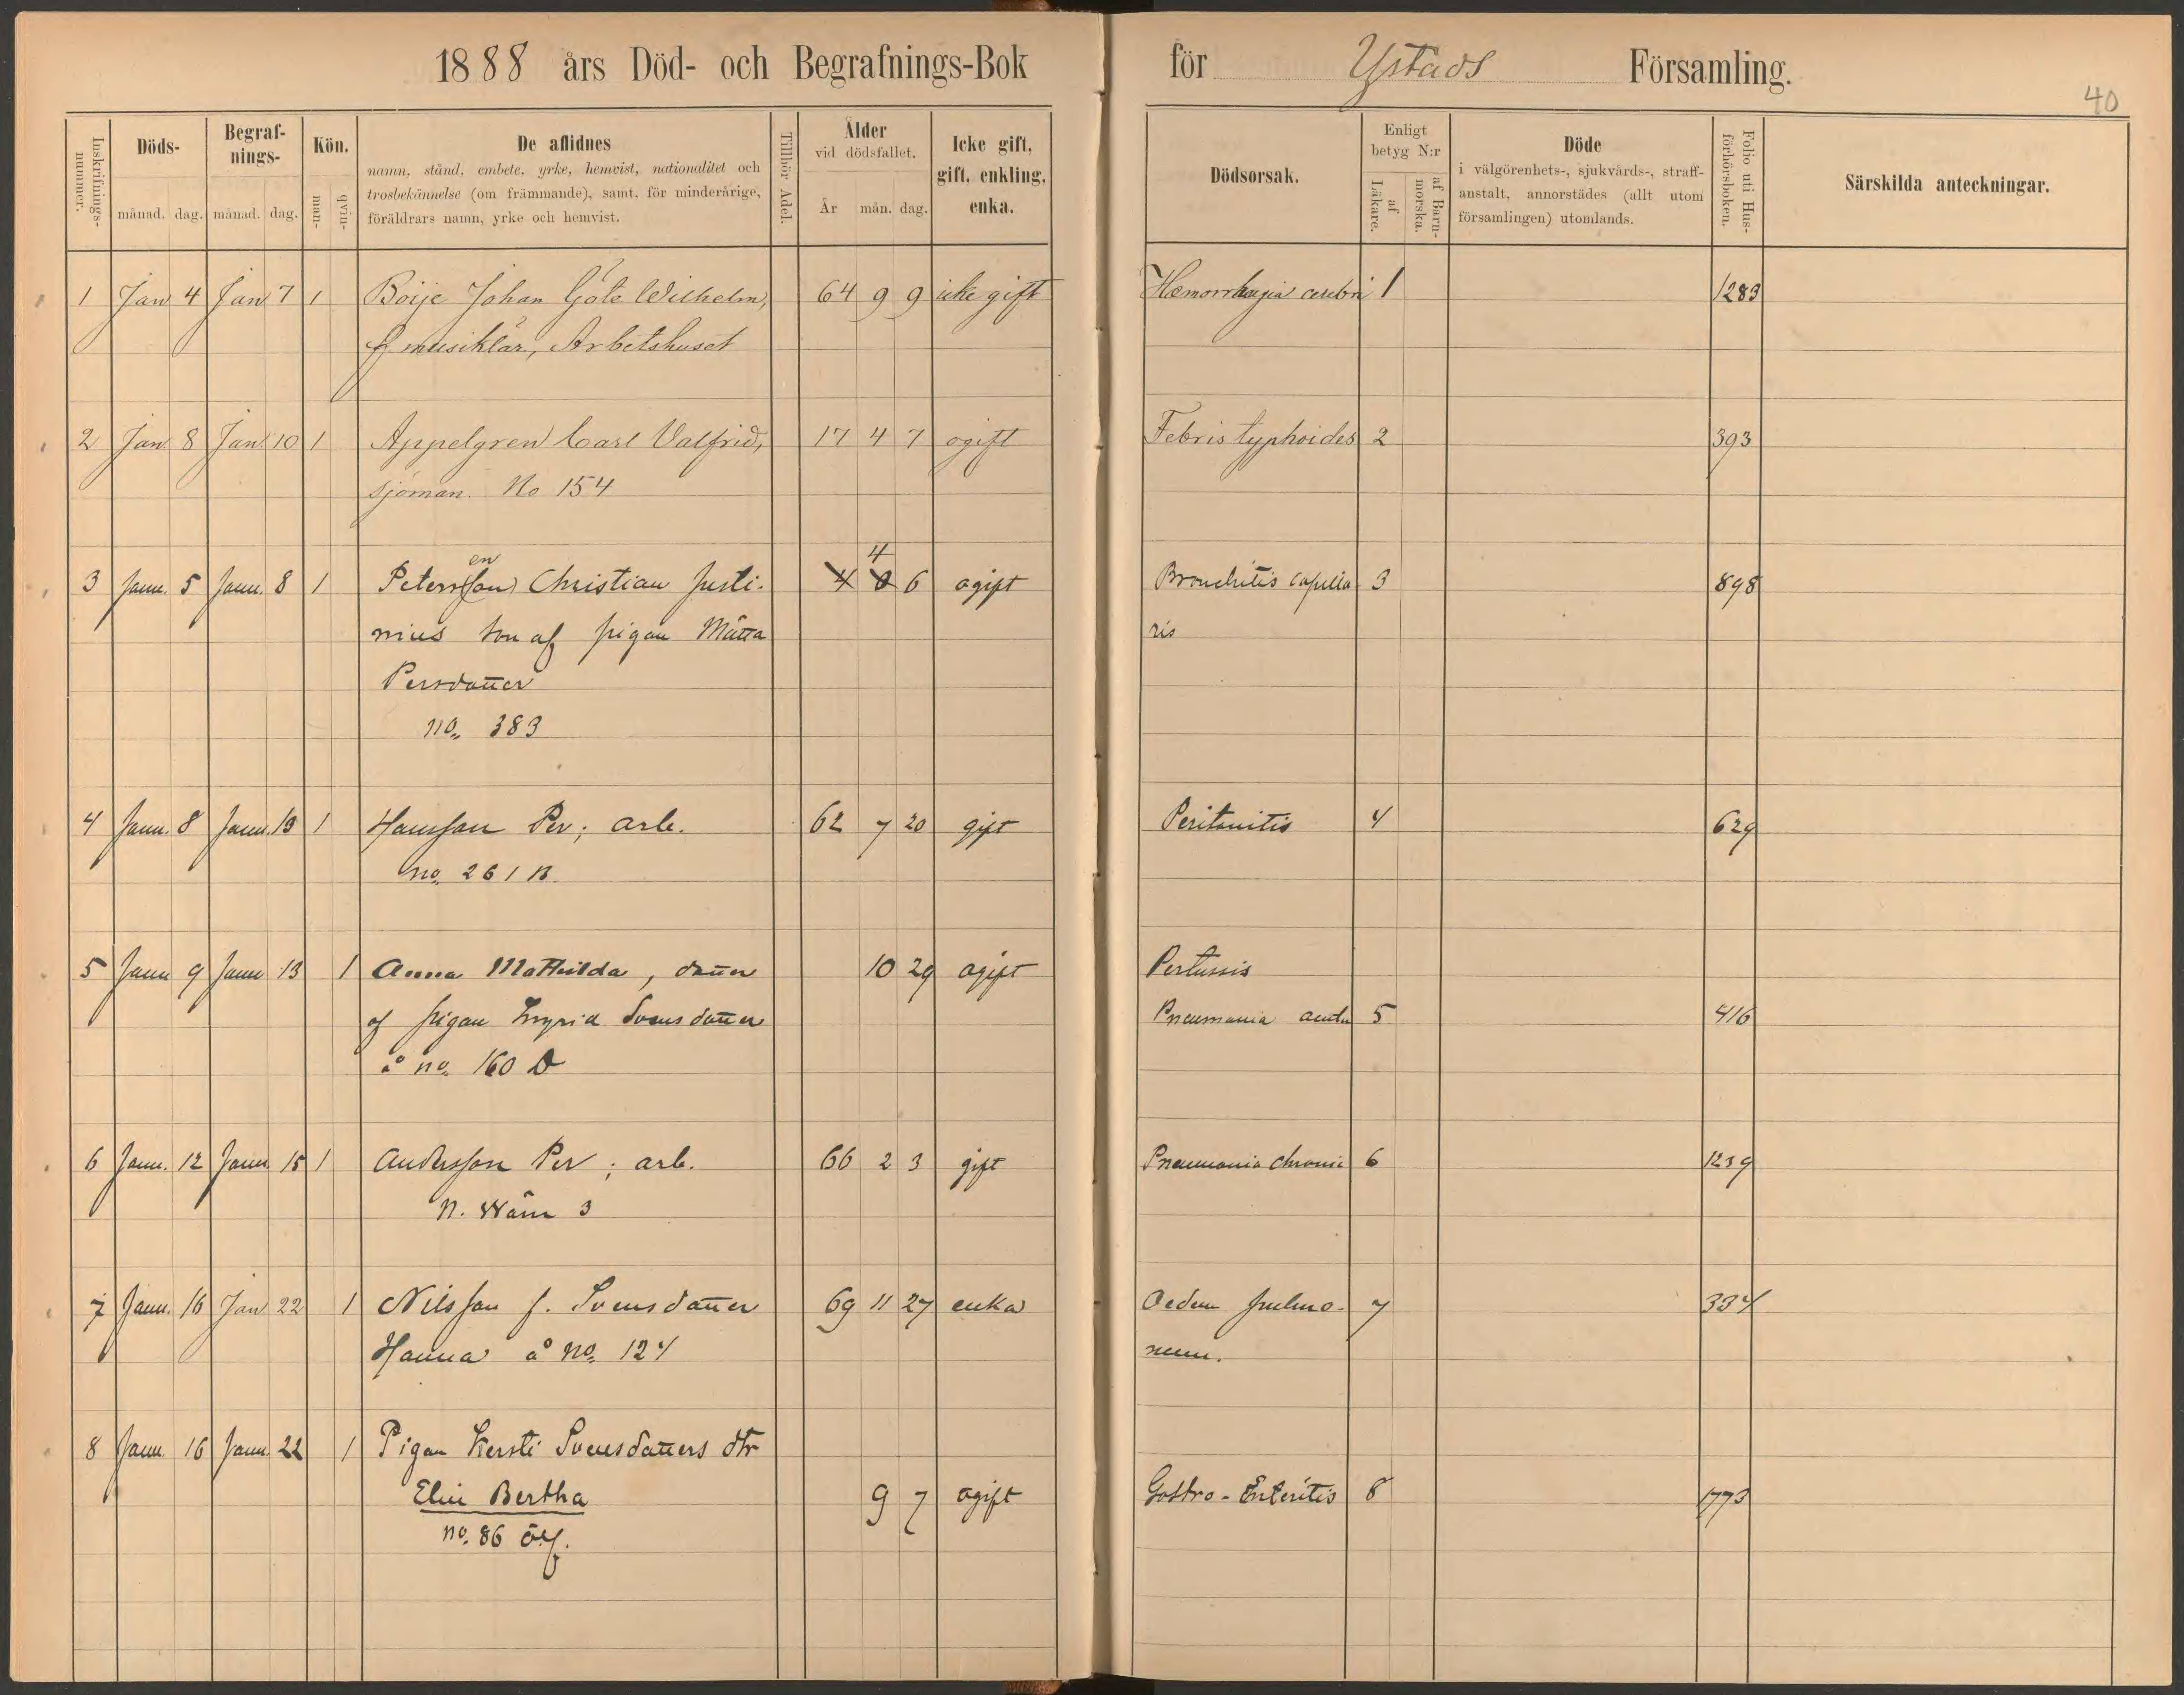 1888 års Död- och Begrafnings-Bok för Ystads Församling.
40
Inskrifnings-nummer.
Döds-
månad. dag.
Begraf-
nings-
månad. dag.
Kön.
man-
qvin-
De aflidnes
namn, stånd, embete, yrke, hemvist, nationalitet och
trosbekännelse (om främmande), samt, för minderårige,
föräldrars namn, yrke och hemvist.
Tillhör Adel.
Ålder
vid dödsfallet.
År mån. dag.
Icke gift,
gift, enkling,
enka.
Dödsorsak.
Enligt
betyg N:r
af Läkare.
af Barn-morska.
Döde
i välgörenhets-, sjukvårds-, straff-
anstalt, annorstädes (allt utom
församlingen) utomlands.
Folio uti Hus-förhörsboken.
Särskilda anteckningar.
1 Jan 4 Jan 7 1 Boije Johan Göte Wilhelm, 64 9 9 icke gift Hæmorrhagia cerebri 1 1283
f. musiklär., Arbetshuset
2 Jan 8 Jan 10 1 Appelgren Carl Valfrid, 17 4 7 ogift Febris typhoides 2 393
sjöman. No 154
en 4
3 Janu. 5 Janu. 8 1 Petersson Christian Justi- 4 8 6 ogift Bronchitis capilla 3 898
nius son af pigan Mätta ris
Persdatter
no. 383
4 Janu. 8 Janu. 13 1 Hansson Per; arb. 62 7 20 gift Peritonitis 4 629
no. 261 B
5 Janu 9 Janu 13 1 Anna Mathilda, datter 10 29 ogift Pertussis
af pigan Ingrid Svensdatter Pneumonia acuta 5 416
å no. 160 D
6 Janu. 12 Janu. 15 1 Andersson Per; arb. 66 2 3 gift Pneumonia chroni 6 1239
N. 3
7 Janu. 16 Jan 22 1 Nilsson f. Svensdatter 69 11 27 enka Oedem pulmo- 7 334
Hanna å no. 124 num.
8 Janu. 16 Janu. 22 1 Pigan Kersti Svensdatters dtr
Elin Bertha 9 7 ogift Gastro-Enteritis 8 1773
no. 86